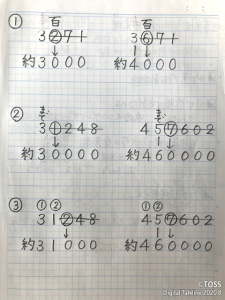 ① 百 百
3②71 3⑥71
約3000 約4000
②
3①248 45⑦602
約30000 約460000
③ ①② ①②
31②48 45⑦602
約31000 約460000
©TOSS
Digital Tableline 2020.8